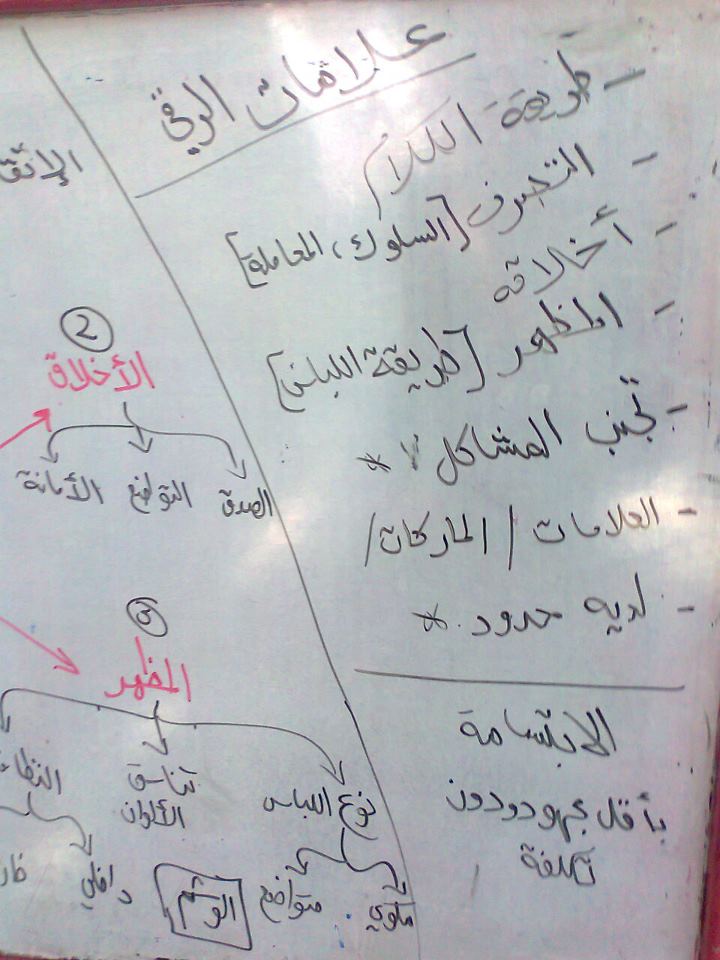 علامات الرقي
- طريقة الكلام
- التصرف [السلوك، المعاملة]
- أخلاقه
- المظهر [طريقة اللباس]
- تجنب المشاكل *
- العلامات / الماركات /
- لديه حدود *
الابتسامة
بأقل مجهود ودون
تكلفة
②
الأخلاق
الصدق التواضع الأمانة
③
المظهر
نوع اللباس
تناسق
الألوان
متواضع
الوشم
داخلي